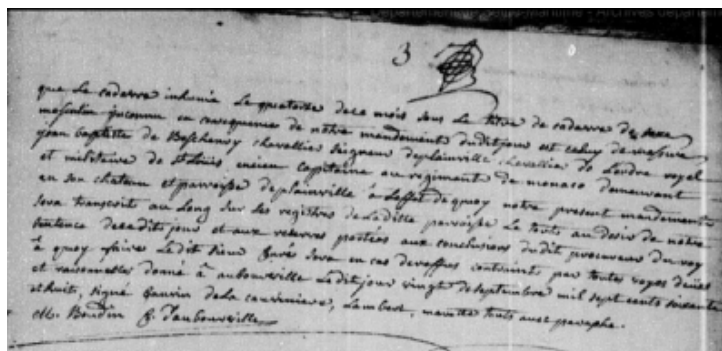 3
que le cadavre inhumé le quatorze de ce mois sous le titre de cadavre de sexe
masculin inconnu en consequence de nôtre mandement duditjour est celuy de messire
jean baptiste de Boschenry chevallier seigneur deplainville chevallier de Lordre royal
et militaire de st Louis ancien capitaine au regiment de monaco demeurant
en son chateau et parroisse deplainville à Leffet de quoy notre present mandement
sera transcrit au Long sur les registres de Laditte parroisse Le tout au desir de notre
sentence decedit jour et aux reserves portées aux conclusions dudit procureur du roy
à quoy faire Ledit sieur Curé sera en cas derefus contraint par toutes voyes deües
et raisonnables donné à aubouville Leditjour vingt deseptembre mil sept cents soixante
et huit, signé de la Lambert, tout avec paraphe.
M. Boudin